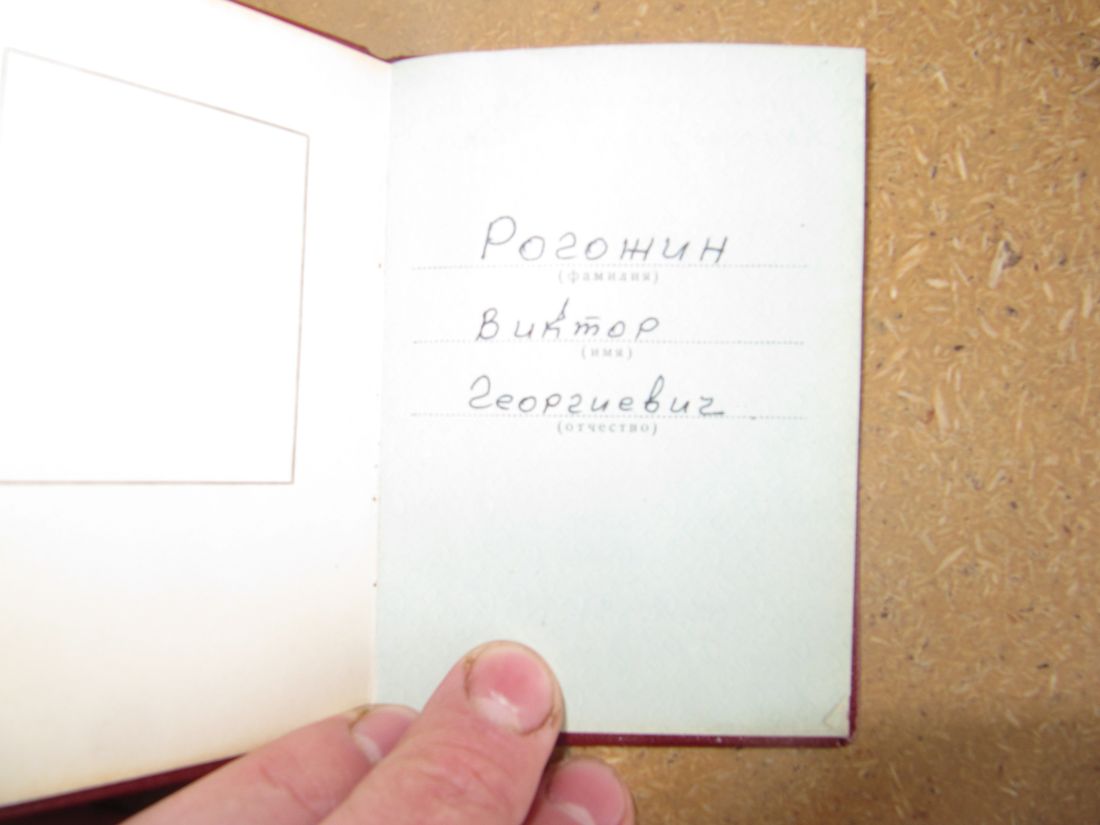 Рогожин
(фамилия)
Виктор
(имя)
Георгиевич
(отчество)